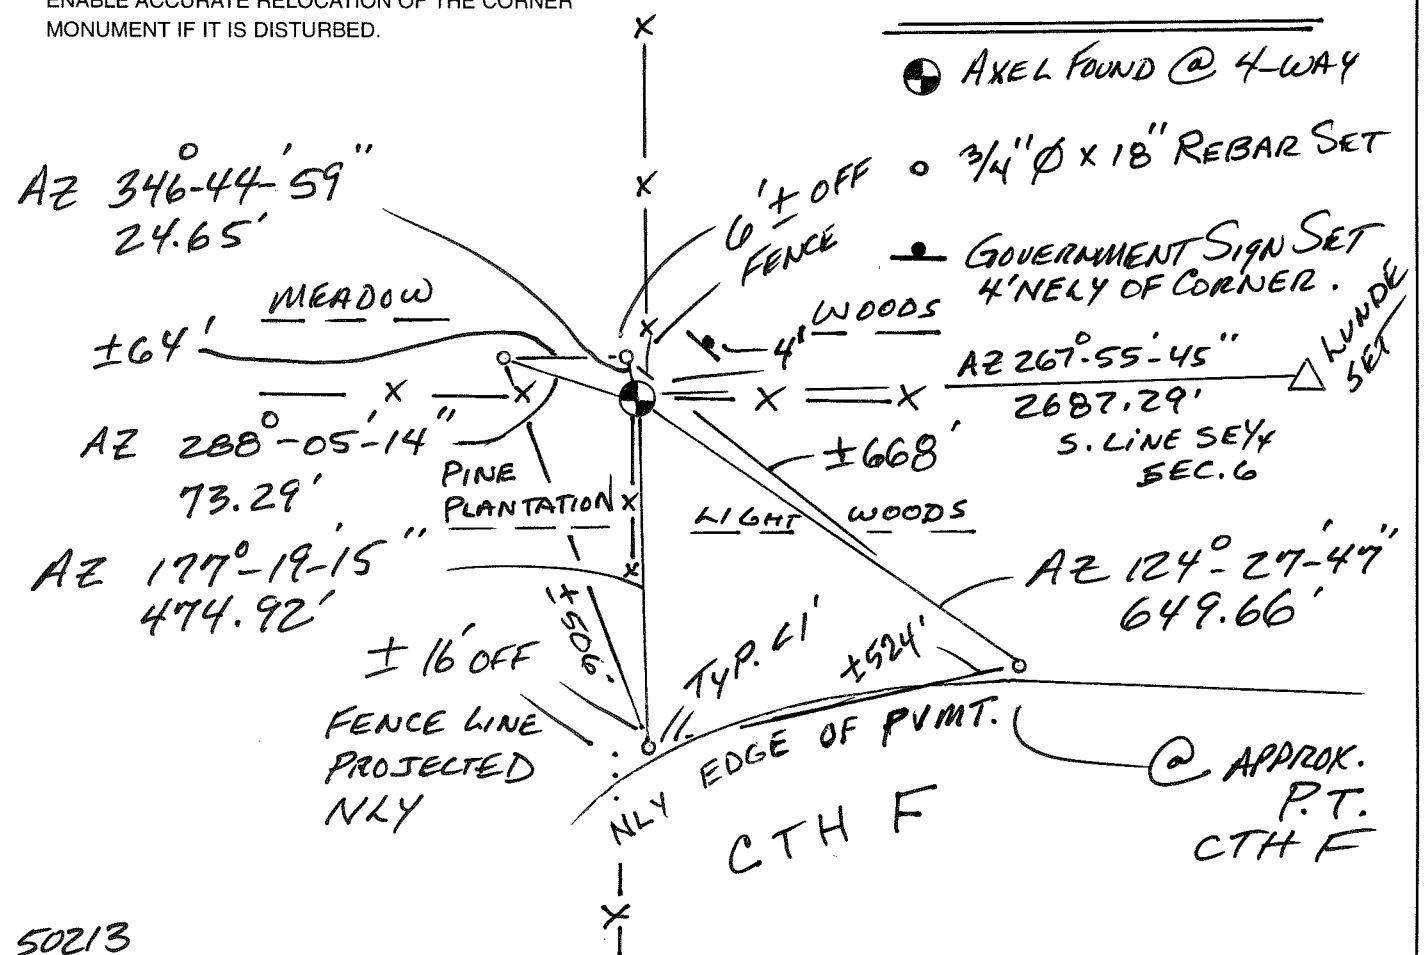 ENABLE ACCURATE RELOCATION OF THE CORNER
MONUMENT IF IT IS DISTURBED.
AXEL FOUND @ 4-WAY
3/4"Ø x 18" REBAR SET
GOVERNMENT SIGN SET
4' NELY OF CORNER.
AZ 346°-44'-59"
24.65'
6'± OFF
FENCE
MEADOW
WOODS
±64'
4'
AZ 267°-55'-45"
2687.29'
S. LINE SE1/4
SEC. 6
LUNDE
SET
AZ 288°-05'-14"
73.29'
PINE
PLANTATION
±668'
LIGHT WOODS
AZ 177°-19'-15"
474.92'
AZ 124°-27'-47"
649.66'
±506'
± 16' OFF
FENCE LINE
PROJECTED
NLY
TYP. <1'
±524'
NLY EDGE OF PVMT.
CTH F
@ APPROX.
P.T.
CTH F
50213